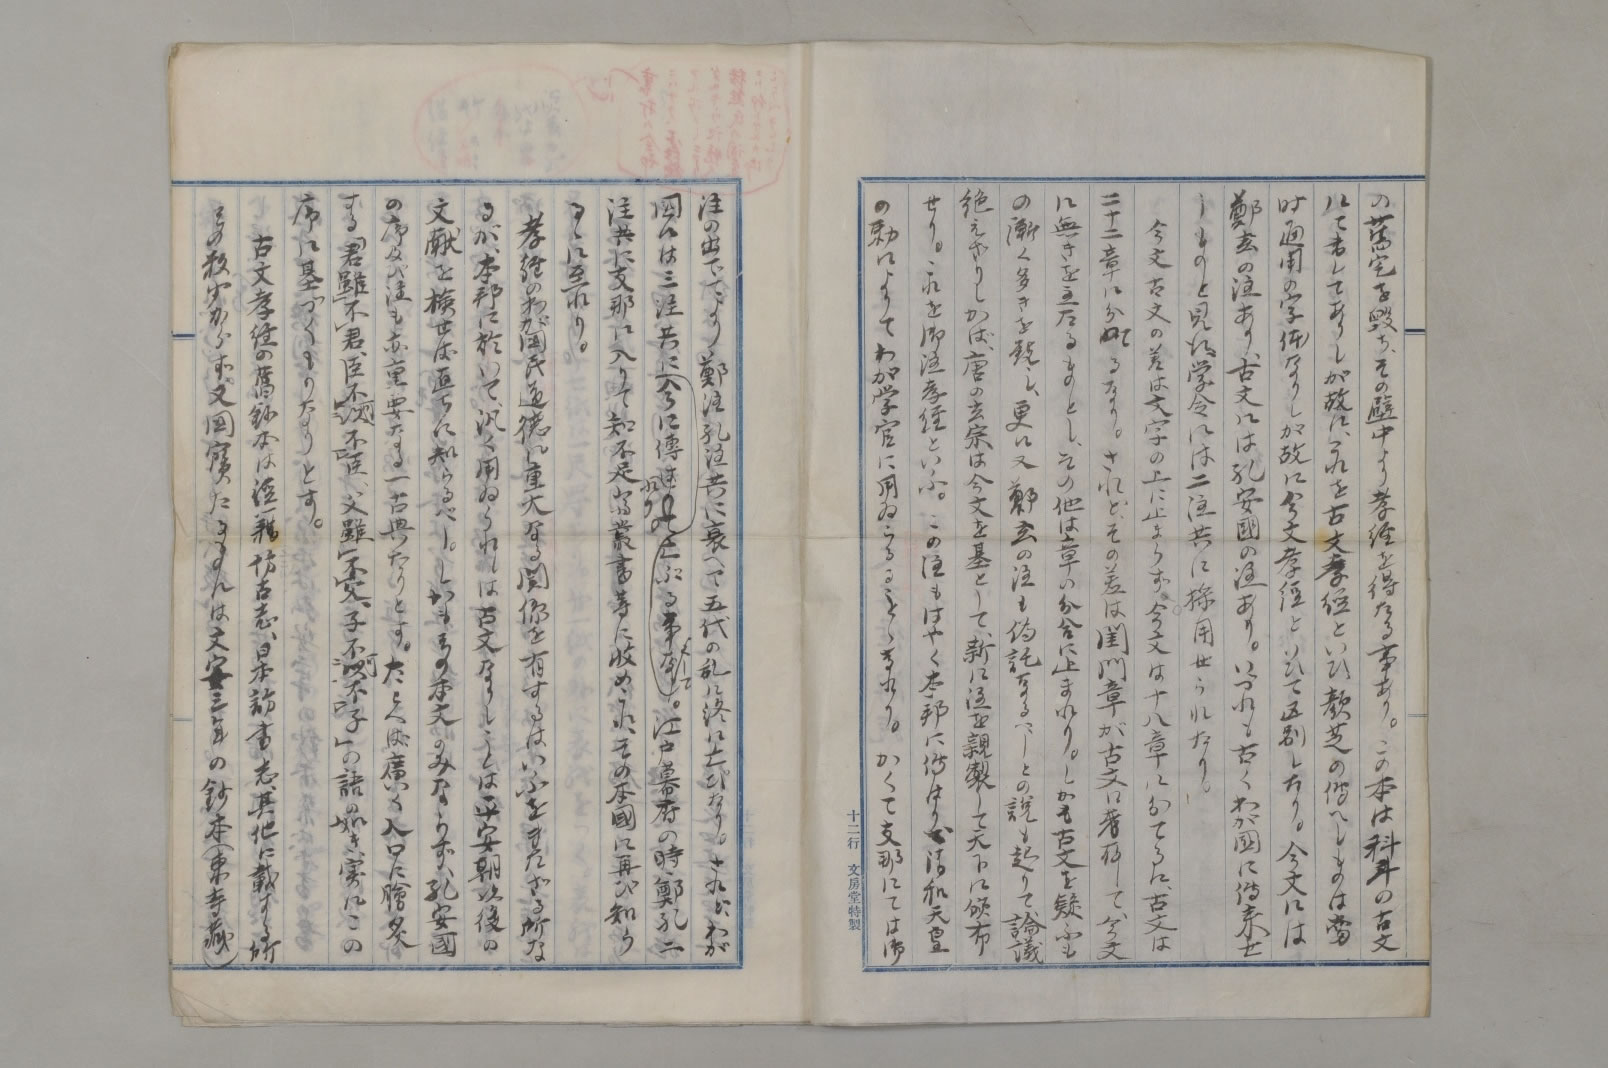 の舊宅を毀ち、その壁中より孝經を得たる事あり。この本は科斗の古文
にて書してありしが故に、これを古文孝經といひ、顔芝の傳へしものは當
時通用の字體なりしが故に今文孝經といひて区別したり。今文には
鄭玄の注あり、古文には孔安國の注あり。いづれも古くわが國に傳来せ
しものと見え、学令には二注共に採用せられたり。
今文古文の差は文字の上に止まらず。今文は十八章に分てるに、古文は
二十二章に分てるなり。されど、その差は閨門章が古文に著存して今文
に無きを主たるものとし、その他は章の分合に止まれり。しかも古文を疑ふも
の漸く多きを致し、更に又鄭玄の注も偽託なるべしとの説も起りて論議
絶えざりしかば、唐の玄宗は今文を基として、新に注を親製して天下に頒布
せり。これを御注孝經といふ。この注もはやく本邦に傳はり、清和天皇
の勅によりてわが学官に用ゐらるることゝなれり。かくて支那にては御
十二行 文房堂特製
注の出でてより鄭注孔注共に衰へて五代の乱に終に亡びたり。されどわが
國には三注共に
江戸幕府の時、鄭孔二
注共に支那に入りて知不足齋叢書等に收められ、その本國に再び知ら
るゝに至れり。
孝經のわが国民道徳に重大なる関係を有するはいふをまたざる所な
るが、本邦に於いて汎く用ゐられしは古文なりしことは平安朝以後の
文献を検せば直ちに知らるべし。しかもその本文のみならず、孔安國
の序及び注も亦重要なる一古典たりとす。たとへば廣く人口に膾炙
する「君雖不君、臣不可以不臣、父雖不父、子不可以不子」の語の如き、実にこの
序に基づくものなりとす。
古文孝經の舊鈔本は經籍訪古志、日本訪書志其他に載する所
その数少からず。又国寳たるものには文安三年の鈔本(東寺藏)